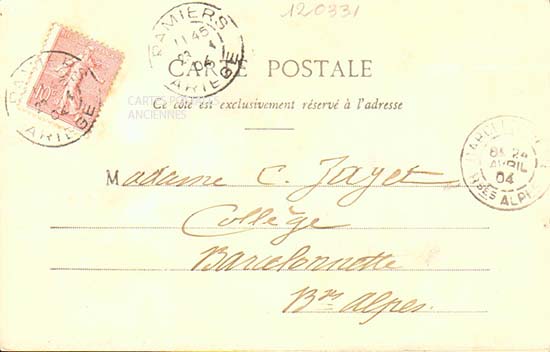 120331
PAMIERS
11 45
23
04
ARIEGE
10
ARIEGE
CARTE POSTALE
Ce côté est exclusivement réservé à l'adresse
CARTES POSTALES
ANCIENNES
Madame C. Jayet
Collège
Barcelonnette
Bses Alpes.
24
AVRIL
04
BSES ALPES